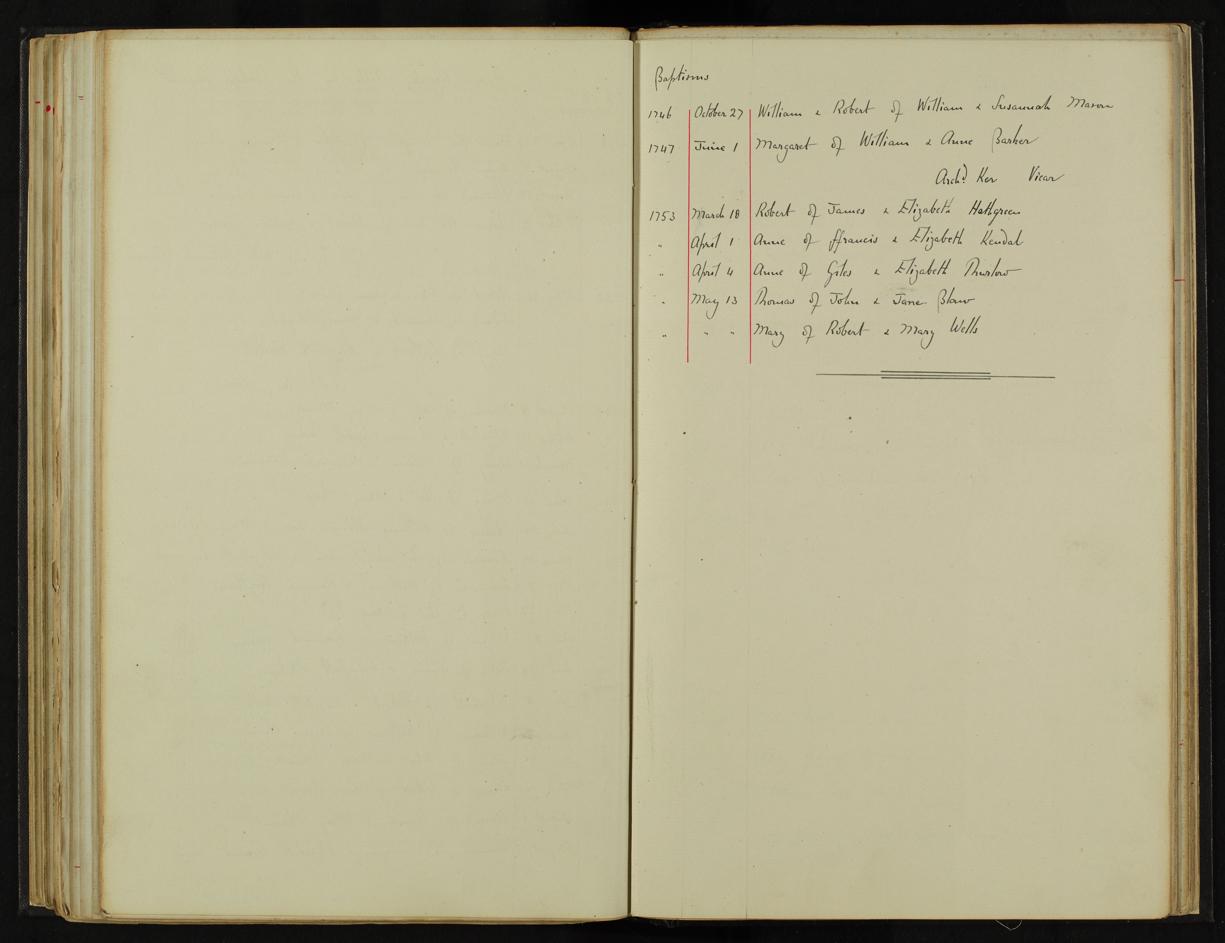 Baptisms
1746 October 27 William & Robert of William & Susannah Mason
1747 June 1 Margaret of William & Anne Barker
Archd Ker Vicar
1753 March 18 Robert of James & Elizabeth Hathgreen
" April 1 Anne of ffrancis & Elizabeth Kendal
" April 4 Anne of Giles & Elizabeth Thurlow
" May 13 Thomas of John & Jane
" " " Mary of Robert & Mary Wells